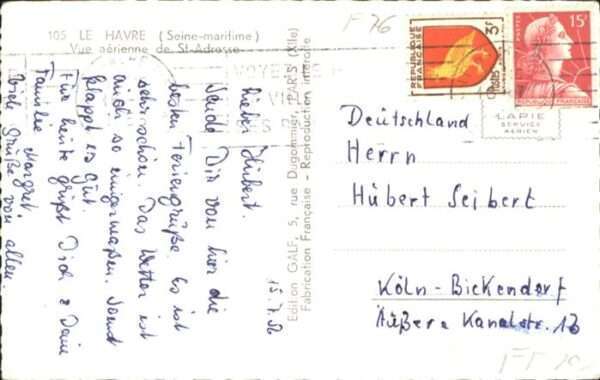 105 LE HAVRE (Seine-maritime)
Vue aérienne de St-Adresse
F 76
15.7.56
Lieber Hubert.
Sende Dir von hier die
besten Feriengrüße. Es ist
sehr schön. Das Wetter ist
auch so einigermaßen. Sonst
klappt es gut.
Für heute grüßt Dich & Deine
Familie Margret.
Viele Grüße von allen.
Edition GALF, 5, rue Dugommier, PARIS (XIIe)
Fabrication Française - Reproduction interdite
REPUBLIQUE
FRANÇAISE
3F
POSTES
15F
REPUBLIQUE FRANÇAISE
SERVICE
AÉRIEN
Deutschland
Herrn
Hübert Seibert
Köln-Bickendorf
Äußere Kanalstr. 13